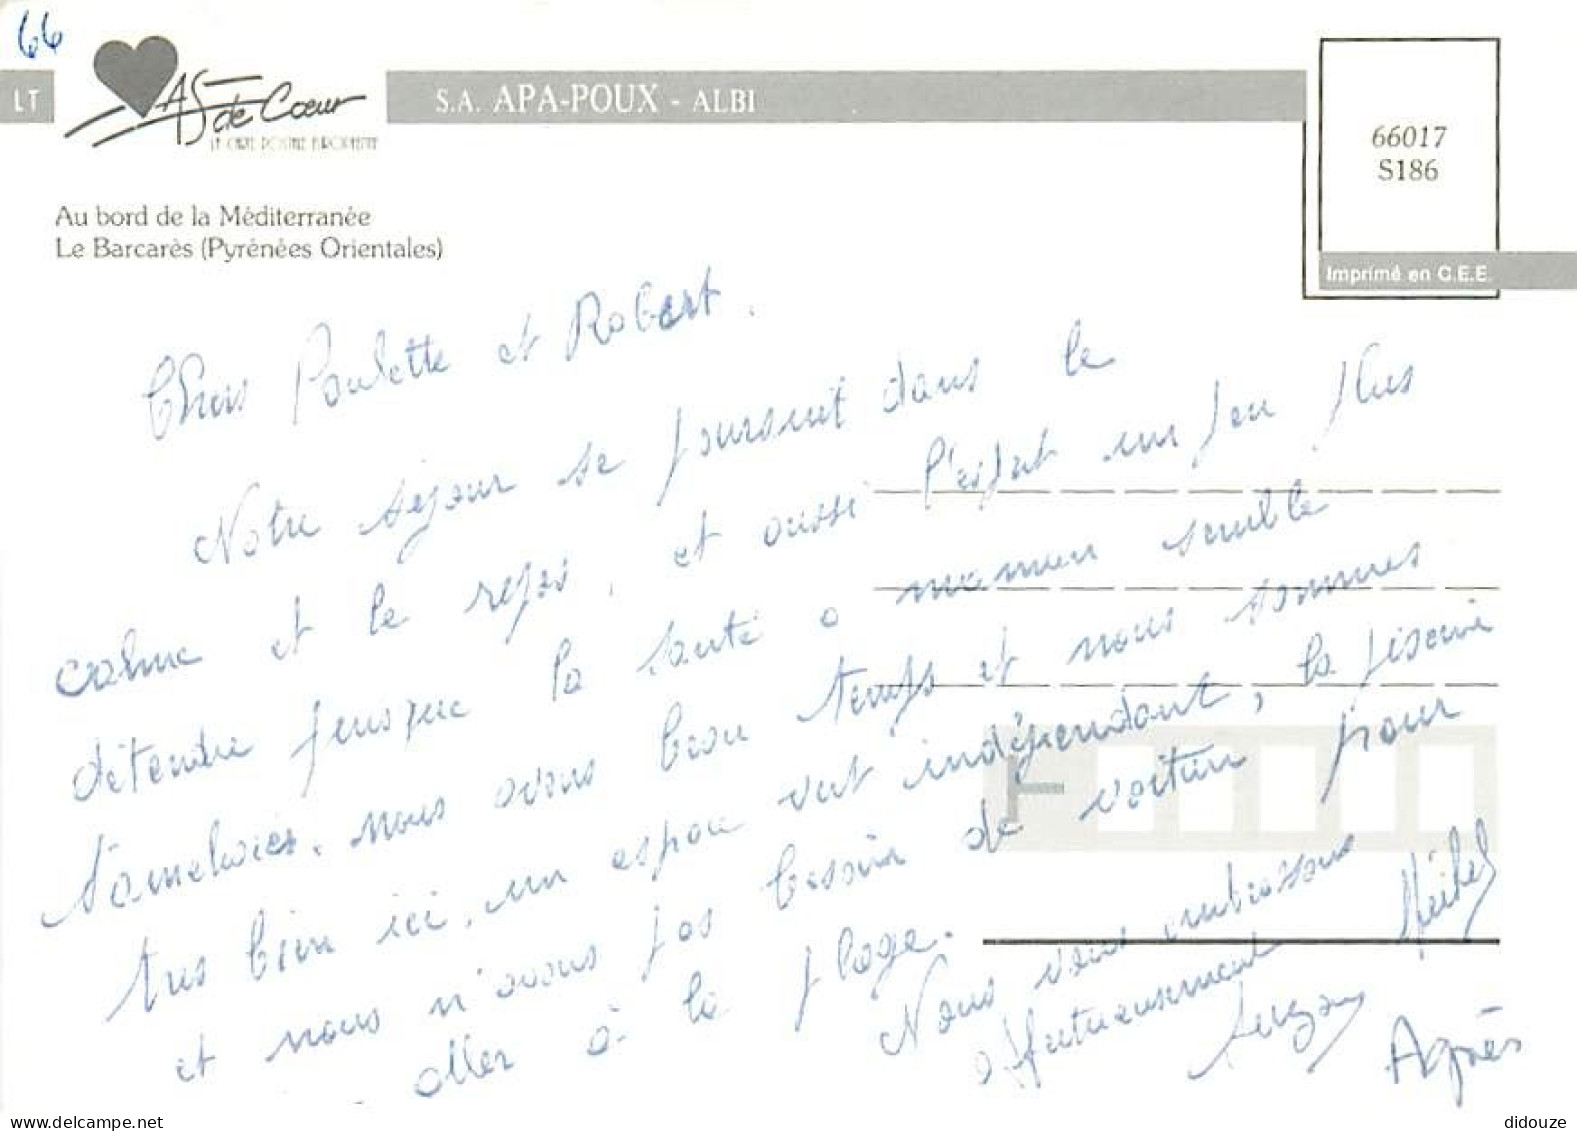 66
LT
AS de Cœur
LA CARTE POSTALE EUROPEENNE
S.A. APA-POUX - ALBI
66017
S186
Imprimé en C.E.E.
Au bord de la Méditerranée
Le Barcarès (Pyrénées Orientales)
Chers Paulette et Robert.
Notre séjour se poursuit dans le
calme et le repos, et aussi l'esprit un peu plus
détendu puisque la santé à maman semble
s'améliorer. nous avons beau temps et nous sommes
très bien ici, un espace vert indépendant, la piscine
et nous n'avons pas besoin de voiture pour
aller à la plage.
Nous vous embrassons
affectueusement Michel
Suzon
Agnès
F
delcampe.net
didouze